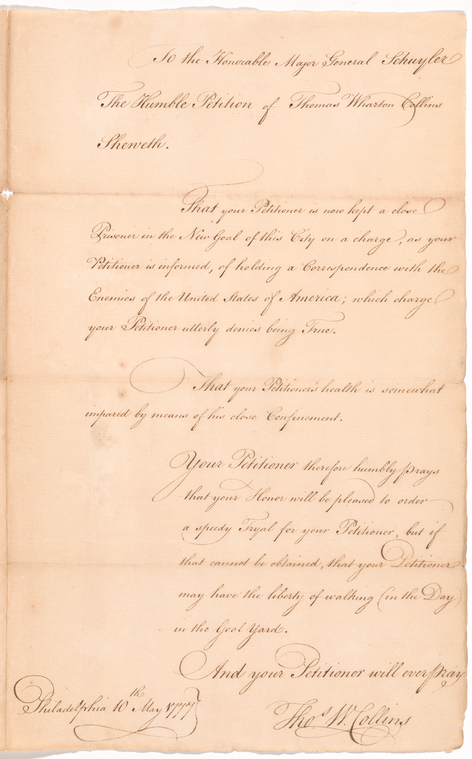 To the Honorable Major General Schuyler
The Humble Petition of Thomas Wharton Collins
Sheweth.
That your Petitioner is now kept a close
Prisoner in the New Goal of this City on a charge, as your
Petitioner is informed, of holding a Correspondence with the
Enemies of the United States of America; which charge
your Petitioner utterly denies being True.
That your Petitioner's health is somewhat
impared by means of his close Confinement.
Your Petitioner therefore humbly prays
that your Honor will be pleased to order
a speedy Tryal for your Petitioner, but if
that cannot be obtained, that your Petitioner
may have the liberty of walking (in the Day)
in the Goal Yard.
And your Petitioner will ever pray
Philadelphia 10th May 1777
Thos. W. Collins